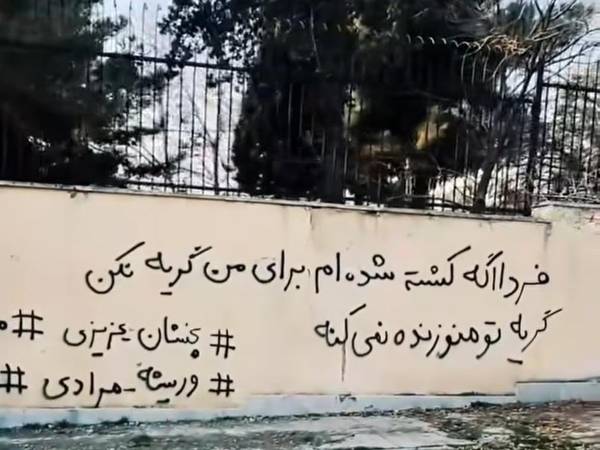 فردا اگه کشته شده ام برای من گریه نکن
گریه تو منو زنده نمی کنه
# پخشان عزیزی #
# وریشه_مرادی #